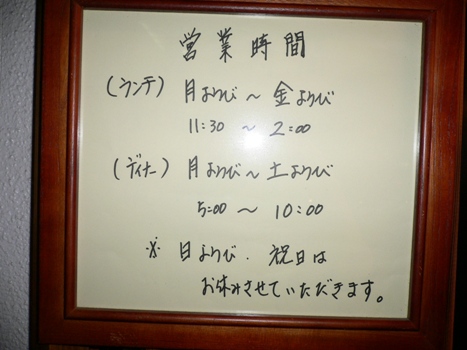 営業時間
(ランチ) 月よりび ～ 金よりび
11:30 ～ 2:00
(ディナー) 月よりび ～ 土よりび
5:00 ～ 10:00
※ 日よりび. 祝日は
お休みさせていただきます。